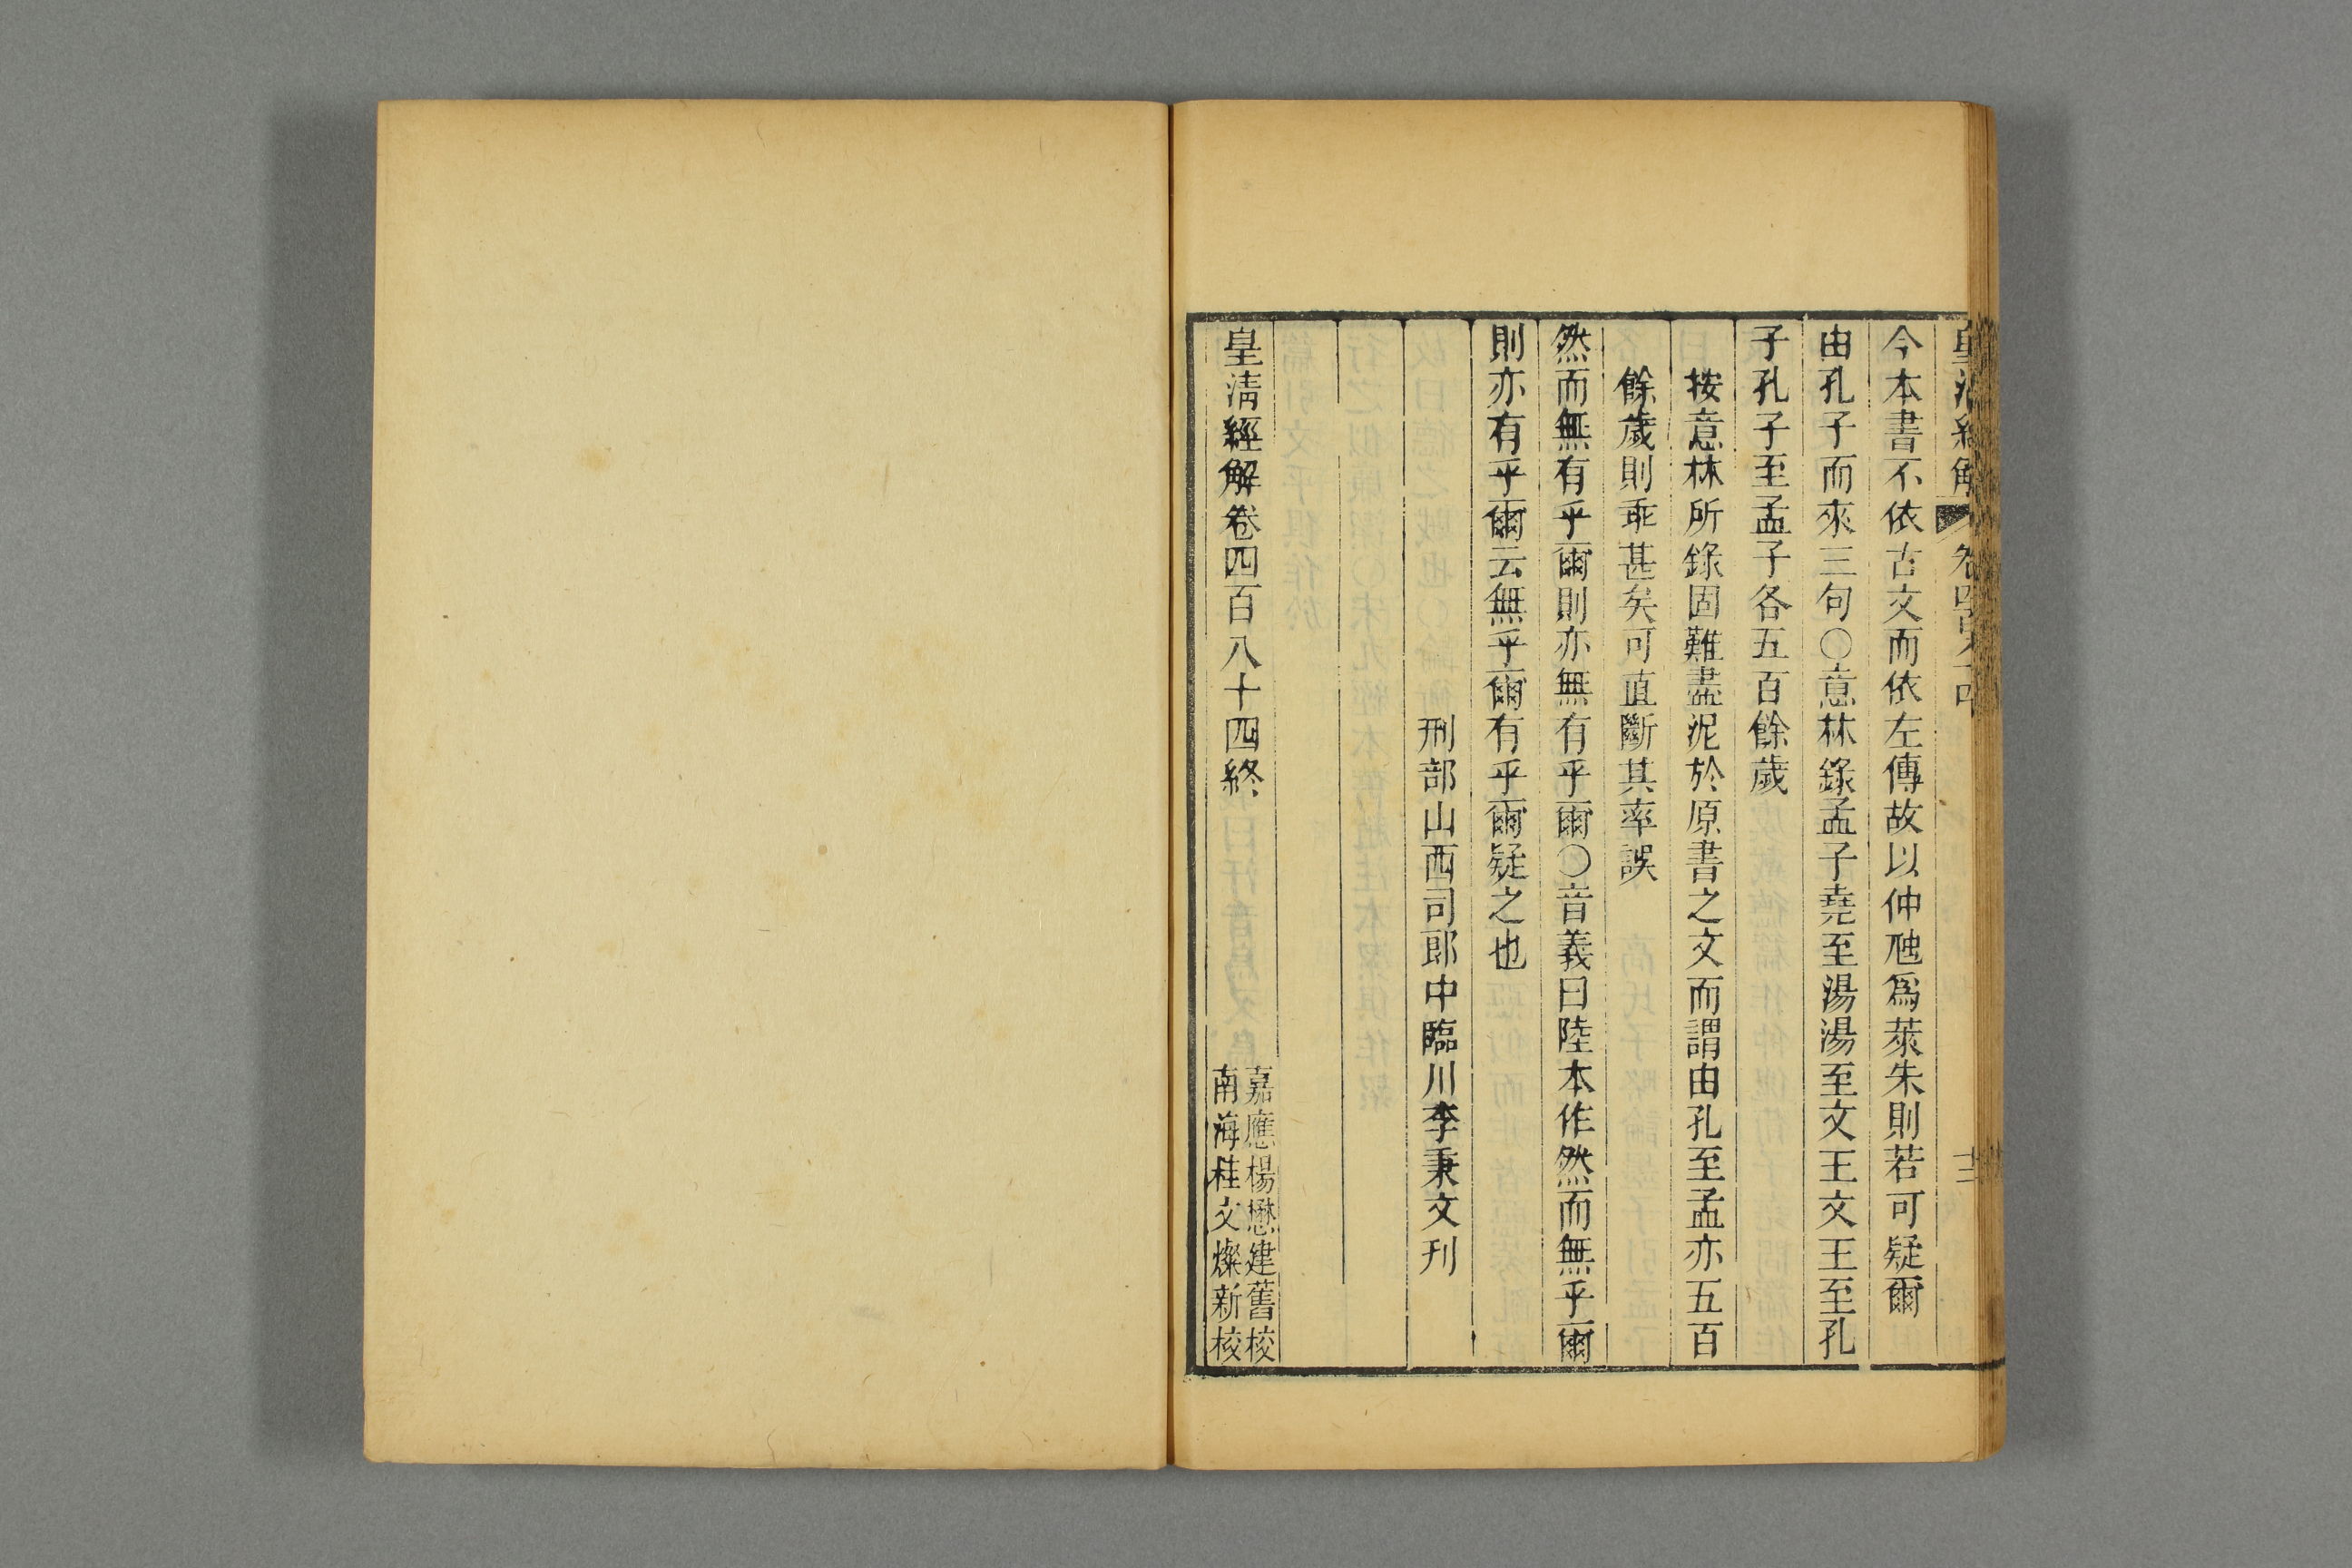 皇清經解 卷四百八十四 十三
今本書不依古文而依左傳故以仲虺爲萊朱則若可疑爾
由孔子而來三句○意林錄孟子堯至湯湯至文王文王至孔
子孔子至孟子各五百餘歲
按意林所錄固難盡泥於原書之文而謂由孔至孟亦五百
餘歲則乖甚矣可直斷其率誤
然而無有乎爾則亦無有乎爾○音義曰陸本作然而無乎爾
則亦有乎爾云無乎爾有乎爾疑之也
刑部山西司郎中臨川李秉文刊
皇淸經解卷四百八十四終
嘉應楊懋建舊校
南海桂文燦新校